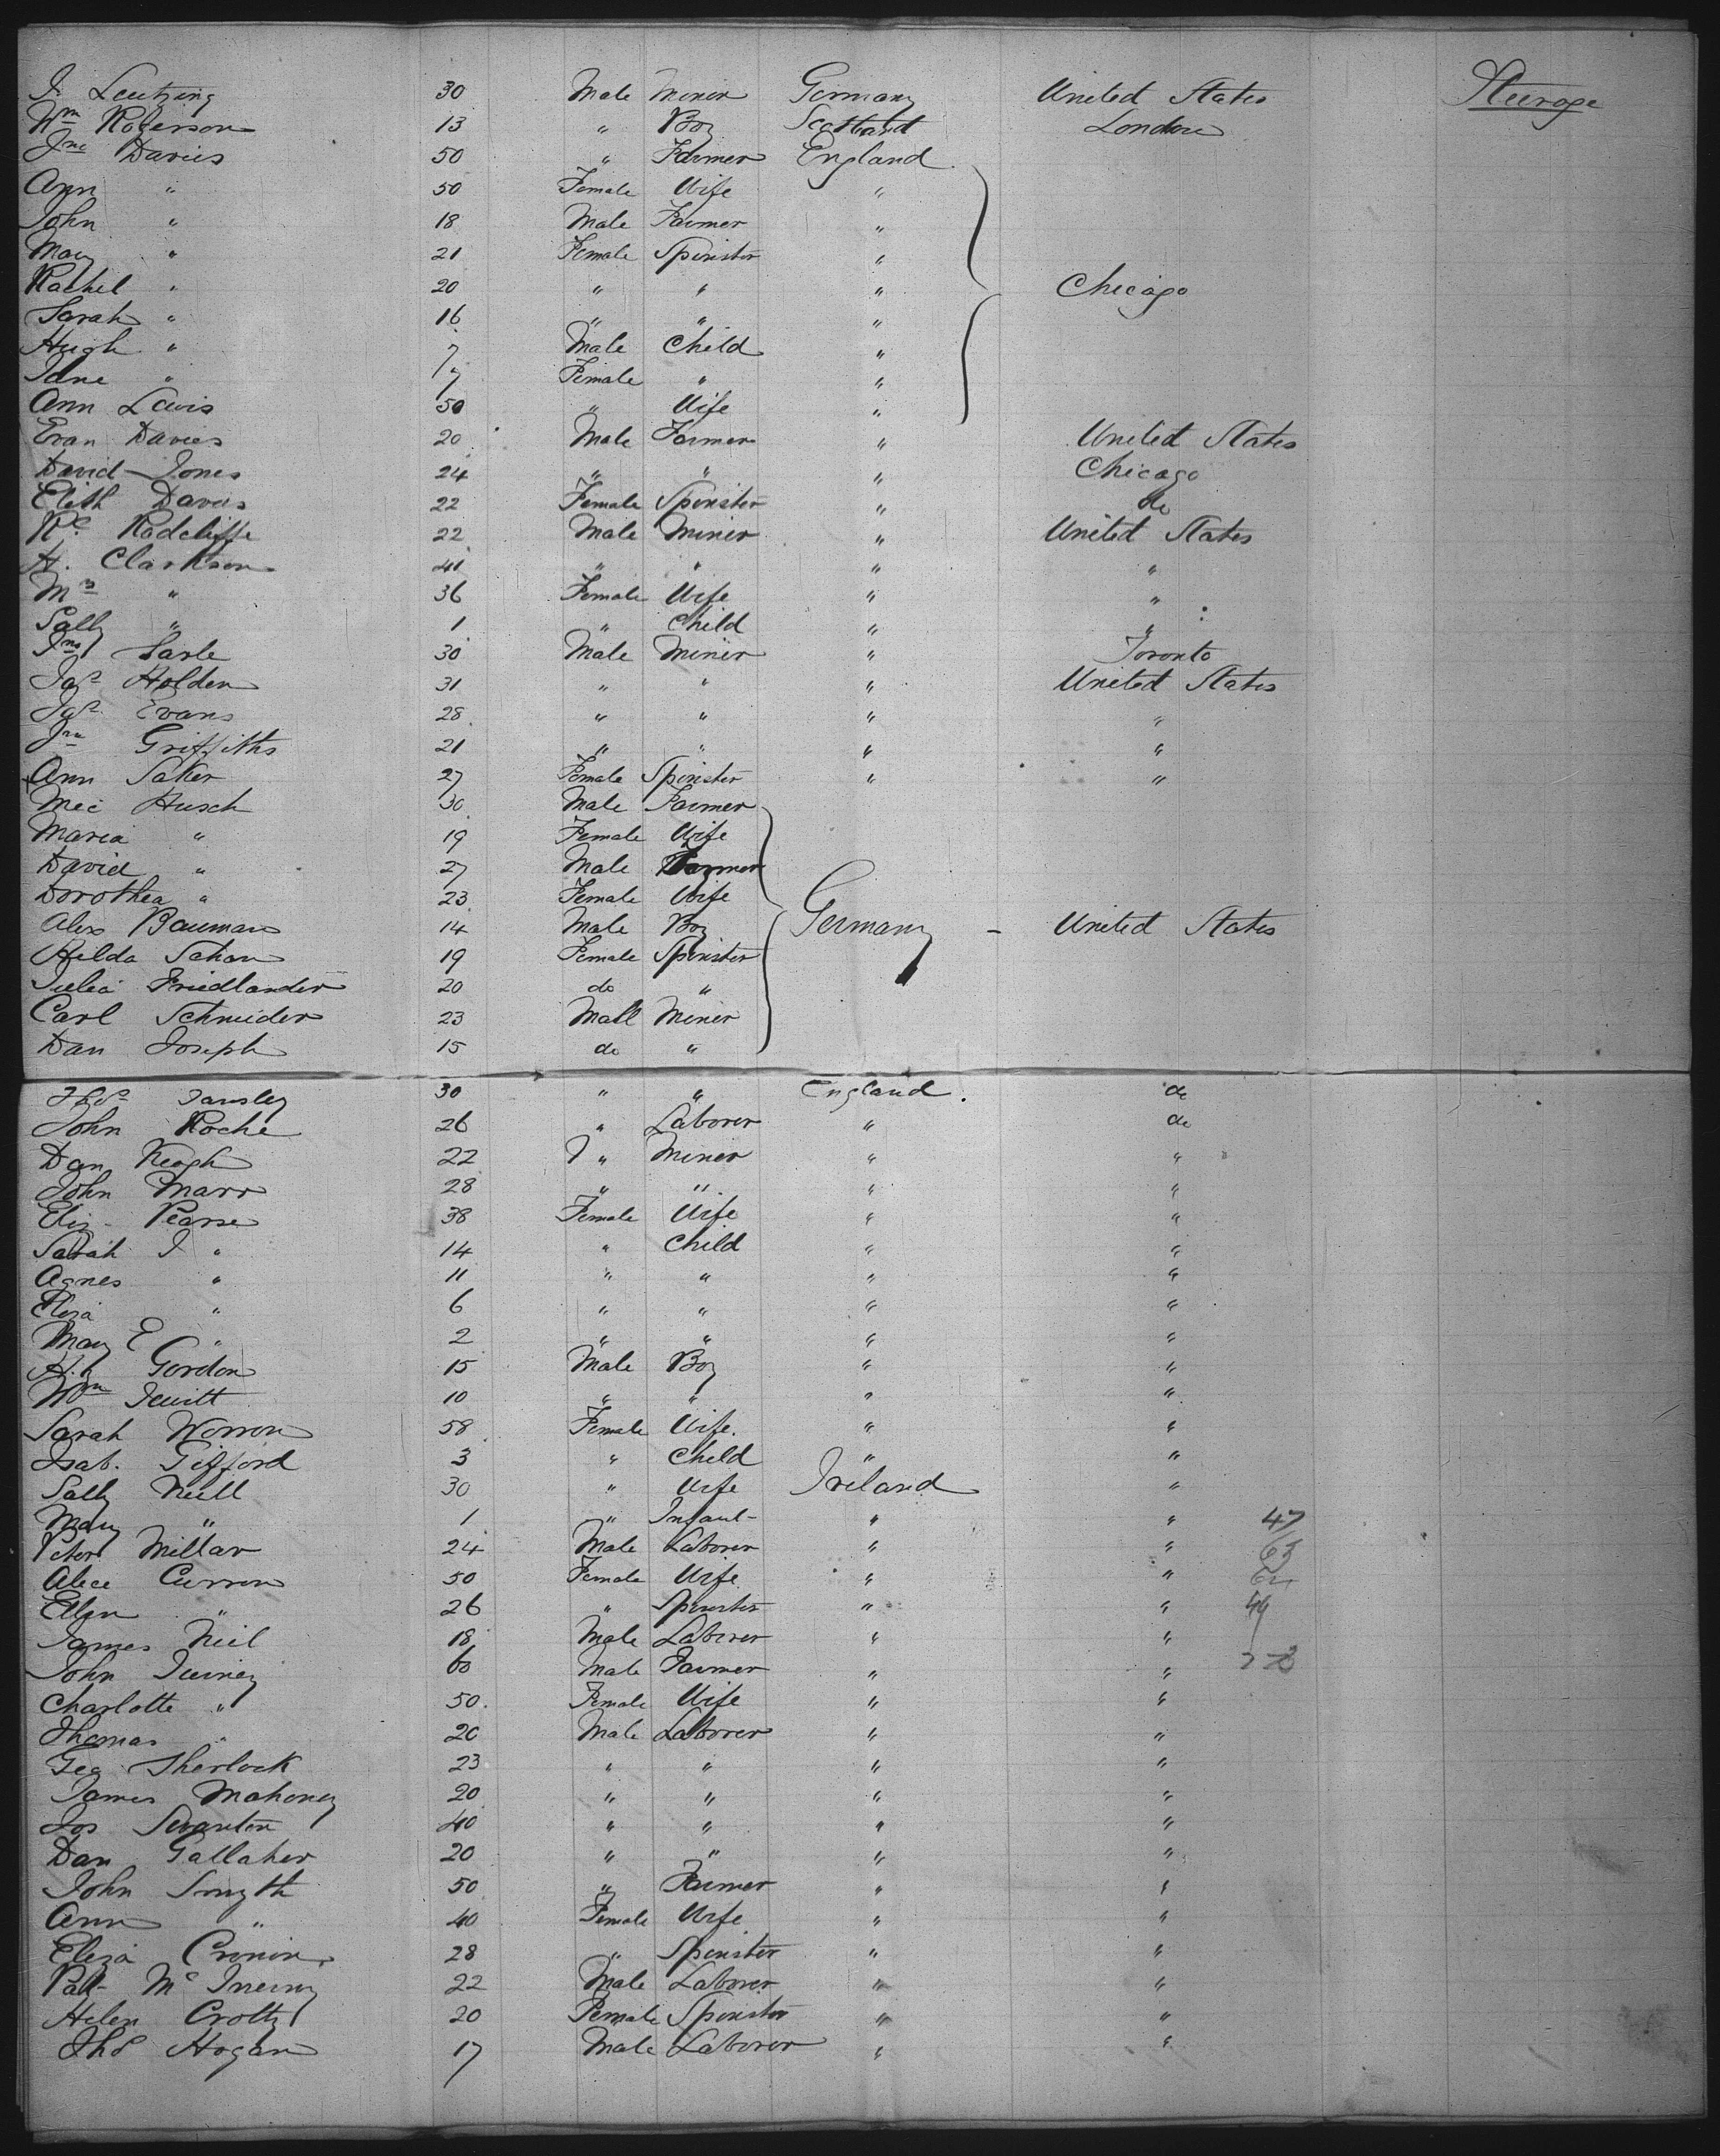 J. Leutzing 30 Male Miner Germany United States Steerage
Wm Rogerson 13 " Boy Scotland London
Jno Davies 50 " Farmer England
Ann " 50 Female Wife "
John " 18 Male Farmer "
Mary " 21 Female Spinster "
Rachel " 20 " " " Chicago
Sarah " 16 " " "
Hugh " 7 Male Child "
Jane " 7 Female " "
Ann Lewis 50 " Wife "
Evan Davies 20 Male Farmer " United States
David Jones 24 " " " Chicago
Elizth Davies 22 Female Spinster " do
Rd Radcliffe 22 Male Miner " United States
H. Clarkson 41 " " " "
Mrs " 36 Female Wife " "
Sally " 1 " Child " "
Jno Sarle 30 Male Miner " Toronto
Jas Holden 31 " " " United States
Jas Evans 28 " " " "
Jno Griffiths 21 " " " "
Ann Saker 27 Female Spinster " "
Mec Husch 30 Male Farmer
Maria " 19 Female Wife
David " 27 Male Farmer
Dorothea " 23 Female Wife
Alex Bauman 14 Male Boy Germany - United States
Hulda Schon 19 Female Spinster
Julia Friedlander 20 do "
Carl Schneider 23 Mall Miner
Dan Joseph 15 do "
Thos Tansley 30 " " England. do
John Roche 26 " Laborer " do
Dan Keogh 22 " Miner " "
John Marr 28 " " " "
Eliz Pearse 38 Female Wife " "
Sarah J " 14 " Child " "
Agnes " 11 " " " "
Eliza " 6 " " " "
Mary E " 2 " " " "
Gordon 15 Male Boy " "
Wm Jewitt 10 " " " "
Sarah Worron 58 Female Wife. " "
Isab. Gifford 3 " Child " "
Sally Neill 30 " Wife Ireland "
Mary " 1 " Infant " " 47
Peter Millar 24 Male Laborer " " 63
Alice Curron 50 Female Wife " "
Ellen " 26 " Spinster " "
James Neil 18 Male Laborer " "
John 60 Male Farmer " "
Charlotte " 50. Female Wife " "
Thomas " 20 Male Laborer " "
Geo Sherlock 23 " " " "
James Mahoney 20 " " " "
Jos Swanton 40 " " " "
Dan Gallaher 20 " " " "
John Smyth 50 " Farmer " "
Ann " 40 Female Wife " "
Eliza Cronin 28 " Spinster " "
Patk McInerny 22 Male Laborer " "
Helen Crotty 20 Female Spinster " "
Thos Hogan 17 Male Laborer " "